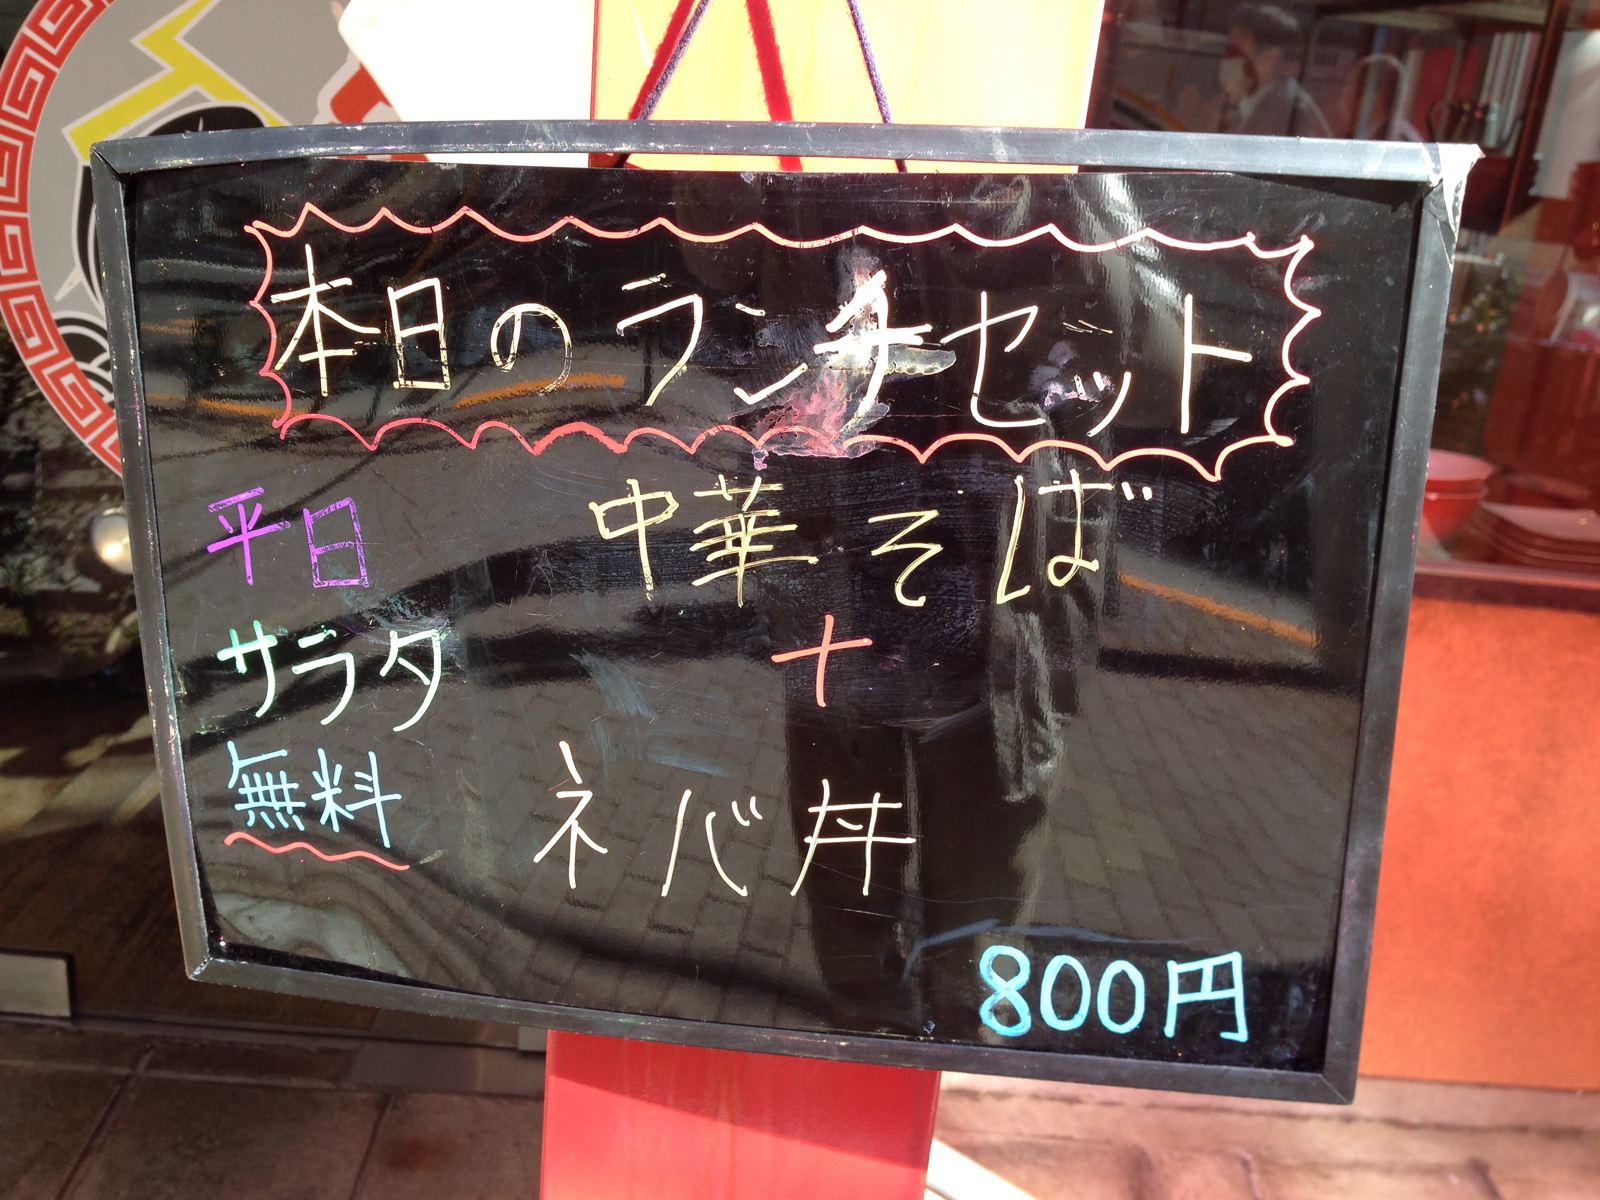 本日のランチセット
平日
サラダ
無料
中華そば
+
ネバ丼
800円